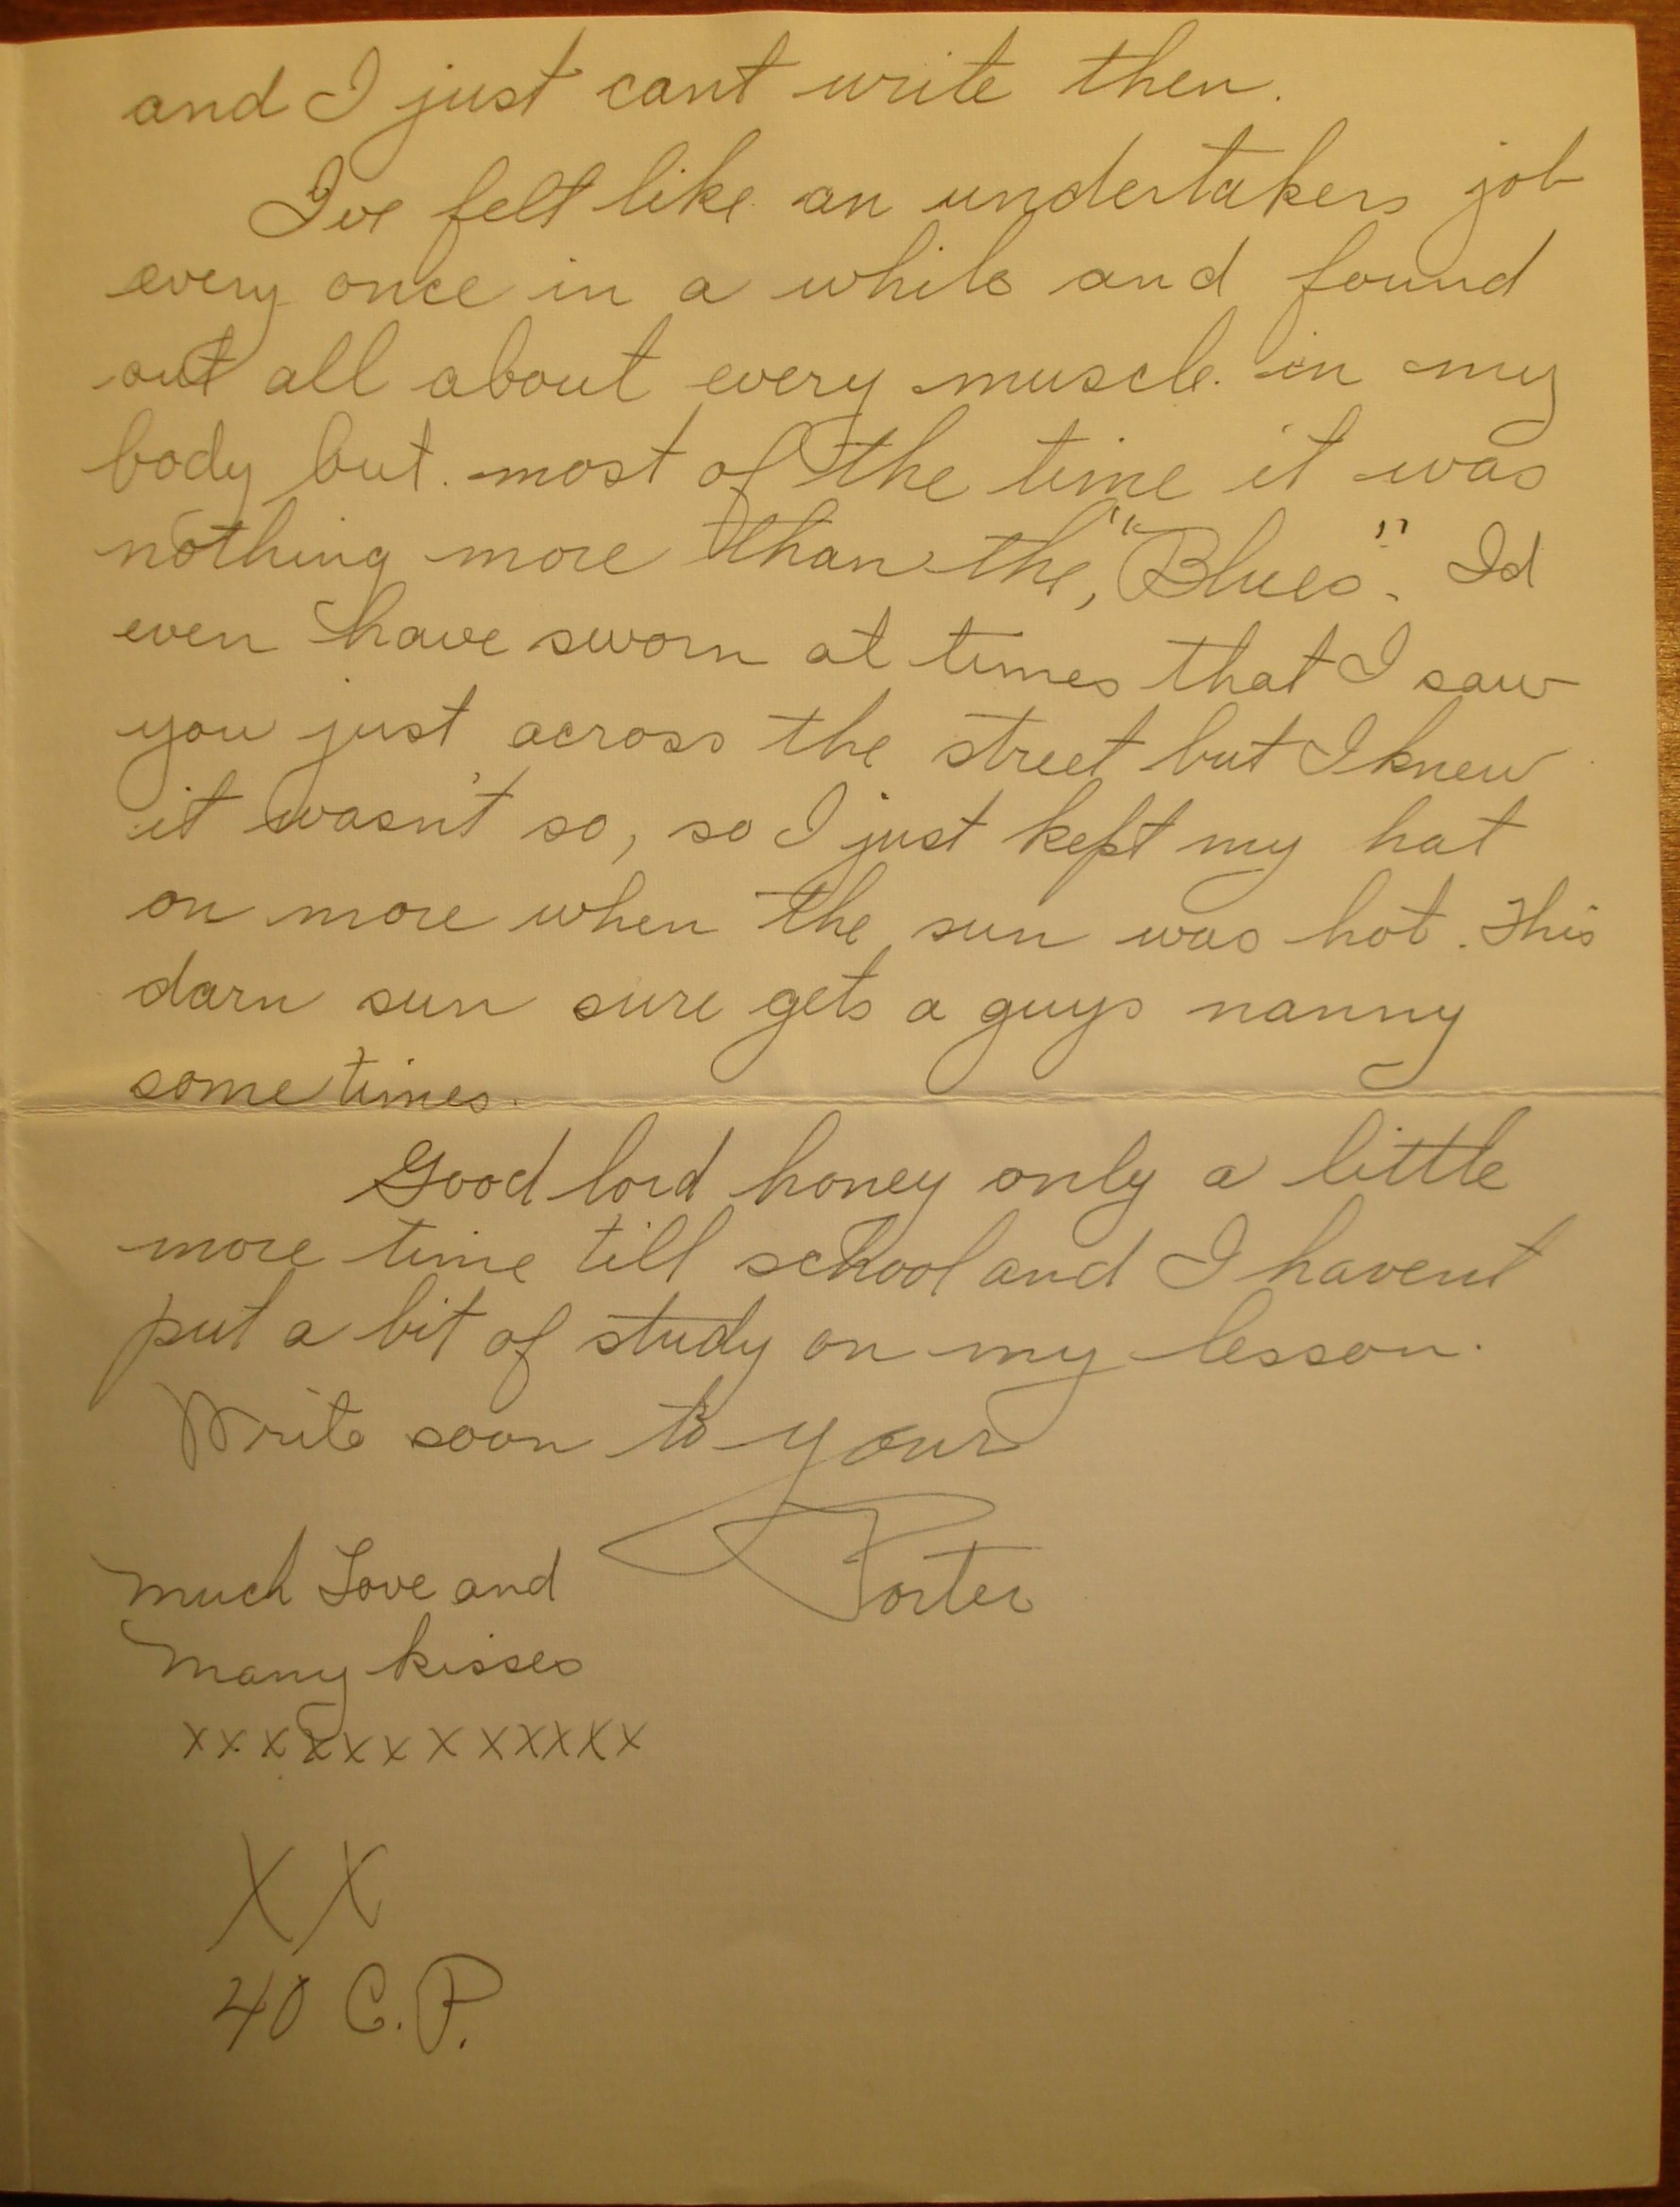 and I just cant write then.
Ive felt like an undertakers job
every once in a while and found
out all about every muscle in my
body but most of the time it was
nothing more than the, "Blues". Id
even have sworn at times that I saw
you just across the street but I knew
it wasn't so, so I just kept my hat
on more when the sun was hot. This
darn sun sure gets a guys nanny
sometimes.
Good lord honey only a little
more time till school and I havent
put a bit of study on my lesson.
Write soon to your
Porter
Much Love and
Many kisses
xxxxxxxxxxxx
XX
40 C.P.